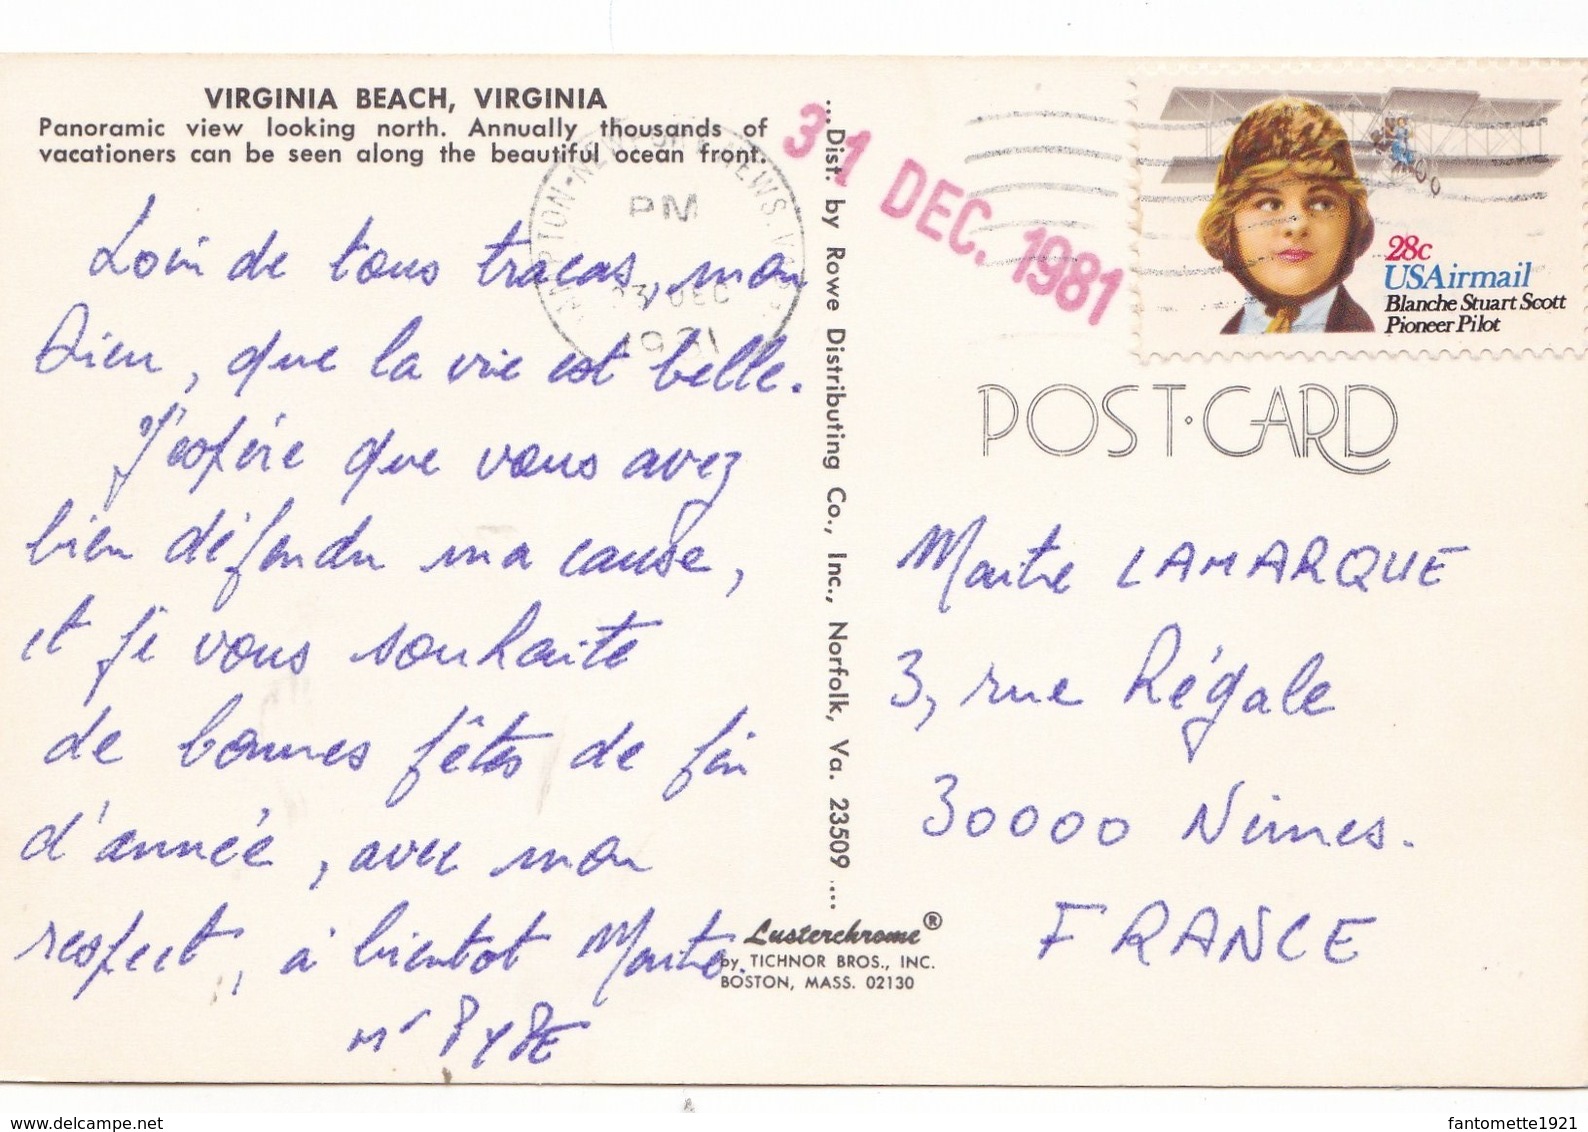 VIRGINIA BEACH, VIRGINIA
Panoramic view looking north. Annually thousands of
vacationers can be seen along the beautiful ocean front.
Loin de tous tracas, mon
Dieu, que la vie est belle.
J'espère que vous avez
bien défendu ma cause,
et je vous souhaite
de bonnes fêtes de fin
d'année, avec mon
respect, à bientot Maitre.
Mr
PM
DEC
...Dist. by Rowe Distributing Co., Inc., Norfolk, Va. 23509 ....
Lusterchrome®
by TICHNOR BROS., INC.
BOSTON, MASS. 02130
31 DEC. 1981
28c
USAirmail
Blanche Stuart Scott
Pioneer Pilot
POST·CARD
Maitre LAMARQUE
3, rue Régale
30000 Nimes.
FRANCE
www.delcampe.net
fantomette1921